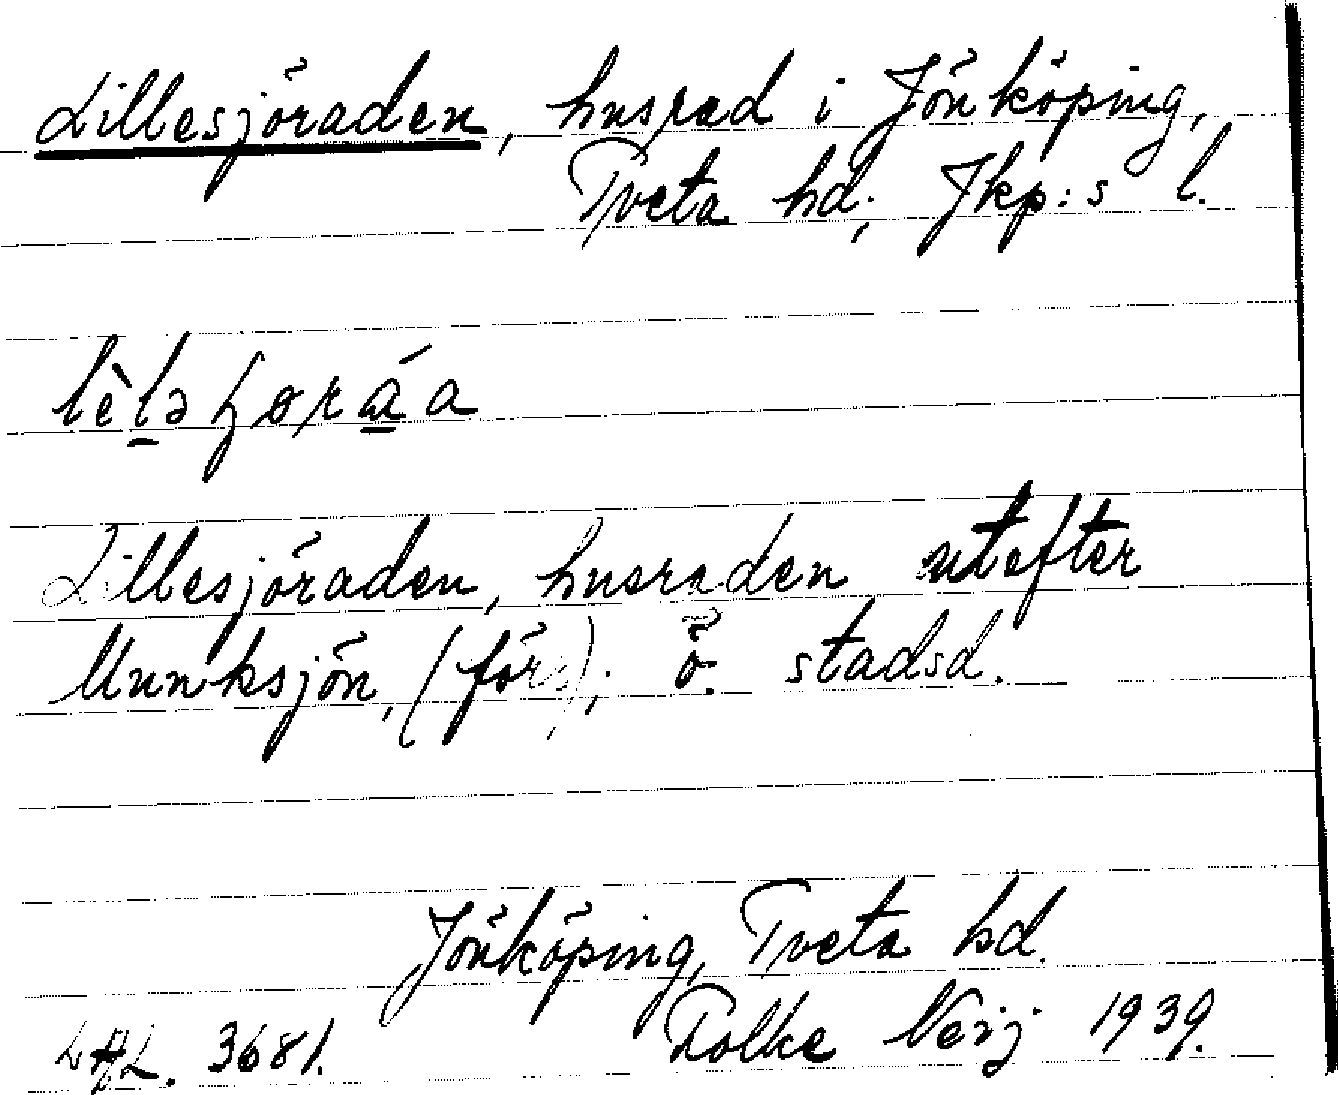 Lillesjöraden, husrad i Jönköping,
Tveta hd; Jkp:s l.
Lillesjöraden, husraden utefter
Munksjön, (förs); ö. stadsd.
Jönköping, Tveta hd.
Folke Neij 1939.
LAL. 3681.